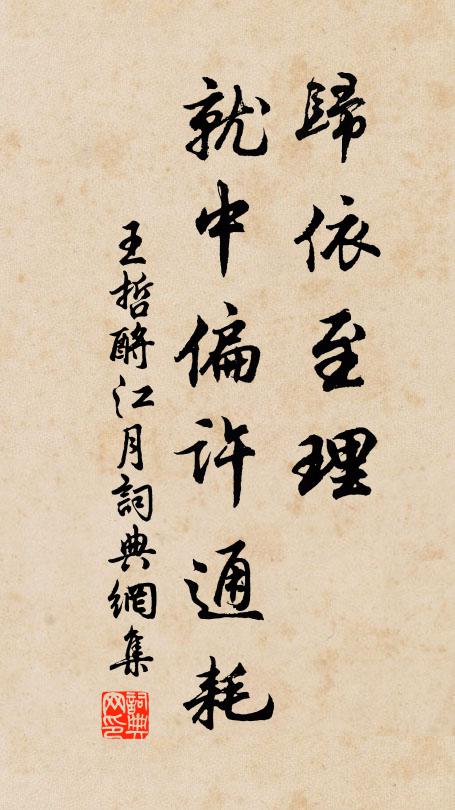 歸依至理
就中偏許通耗
王哲酹江月詞典網集
詞典网印